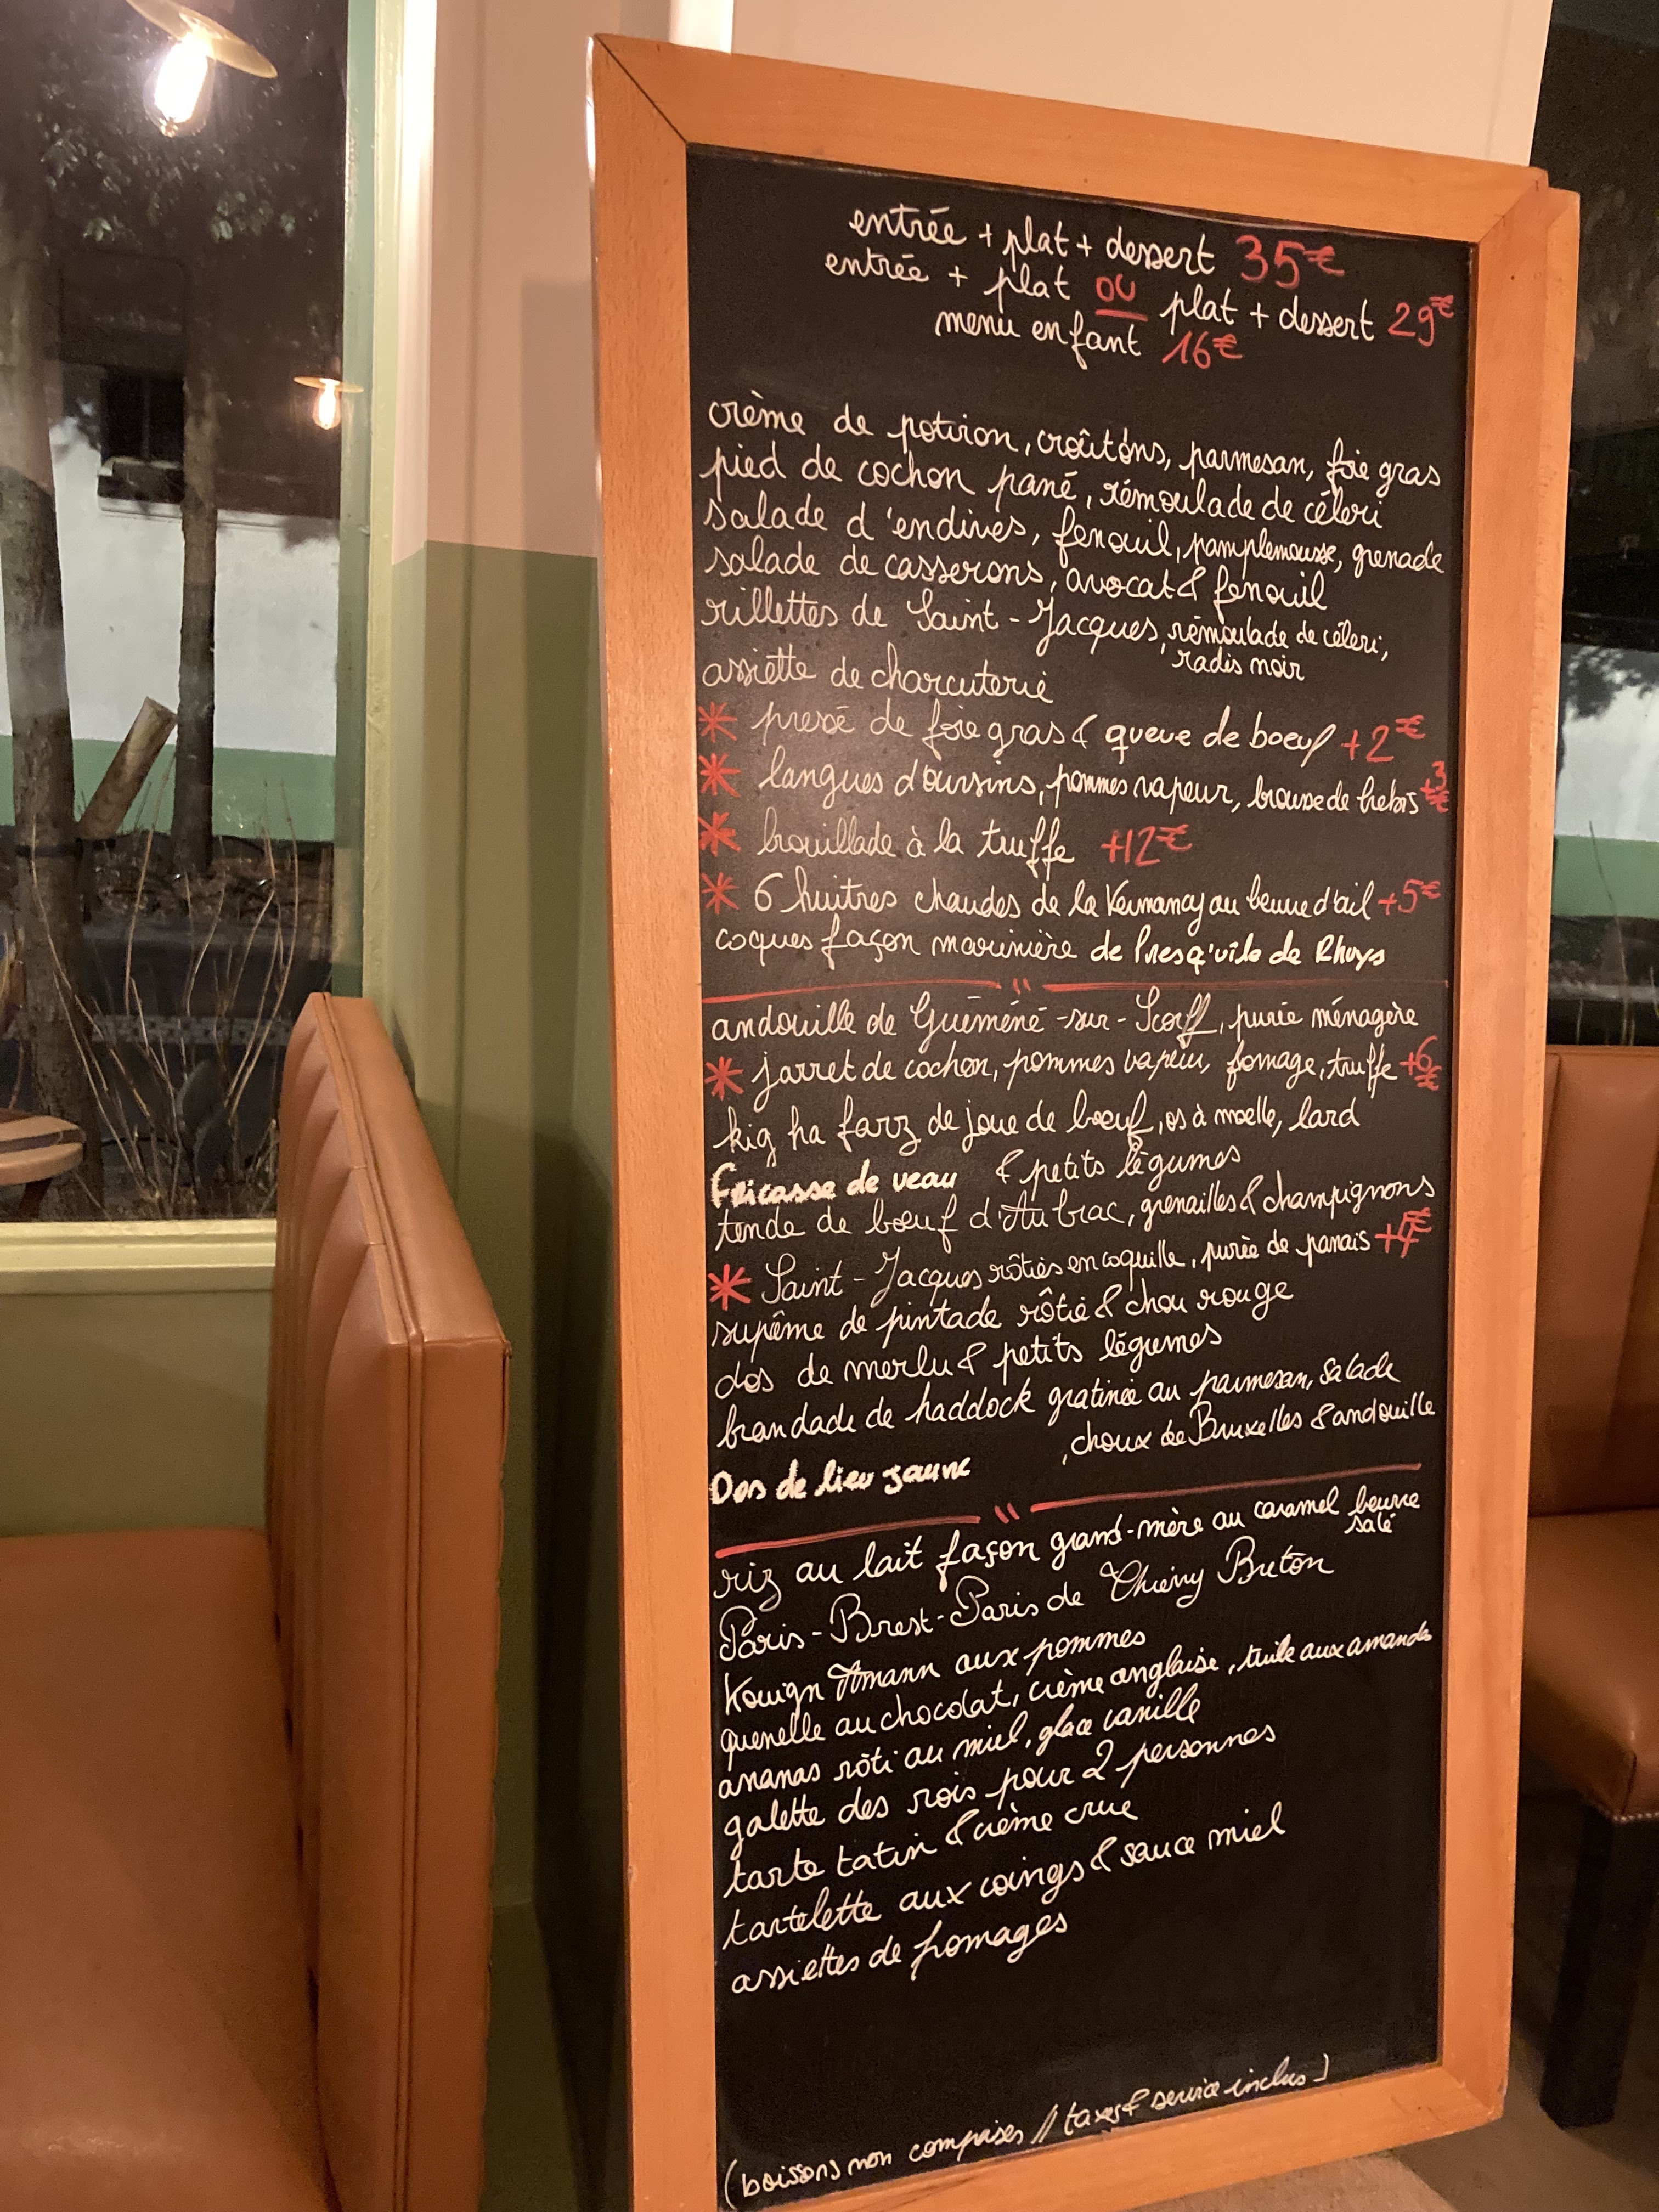 entrée + plat + dessert 35€
entrée + plat ou plat + dessert 29€
menu enfant 16€
crème de potiron, croûtons, parmesan, foie gras
pied de cochon pané, rémoulade de céleri
salade d'endives, fenouil, pamplemousse, grenade
salade de casserons, avocat & fenouil
rillettes de Saint-Jacques, rémoulade de céleri,
radis noir
assiette de charcuterie
* pressé de foie gras & queue de boeuf +2€
* langues d'oursins, pommes vapeur, brousse de brebis +3€
* brouillade à la truffe +12€
* 6 huitres chaudes de la Kernancy au beurre d'ail +5€
coques façon marinière de Presqu'île de Rhuys
"
andouille de Guémené-sur-Scorff, purée ménagère
* jarret de cochon, pommes vapeur, fomage, truffe +6€
kig ha farz de joue de bœuf, os à moelle, lard
Fricasse de veau & petits légumes
tende de bœuf d'Aubrac, grenailles & champignons
* Saint-Jacques rôties en coquille, purée de panais +4€
suprême de pintade rôtie & chou rouge
dos de merlu & petits légumes
brandade de haddock gratinée au parmesan, salade
Dos de lieu jaune , choux de Bruxelles & andouille
"
riz au lait façon grand-mère au caramel beurre
salé
Paris-Brest-Paris de Thierry Breton
Kouign Amann aux pommes
quenelle au chocolat, crème anglaise, tuile aux amandes
ananas rôti au miel, glace vanille
galette des rois pour 2 personnes
tarte tatin & crème crue
tartelette aux coings & sauce miel
assiettes de fromages
(boissons non comprises // taxes & service inclus)